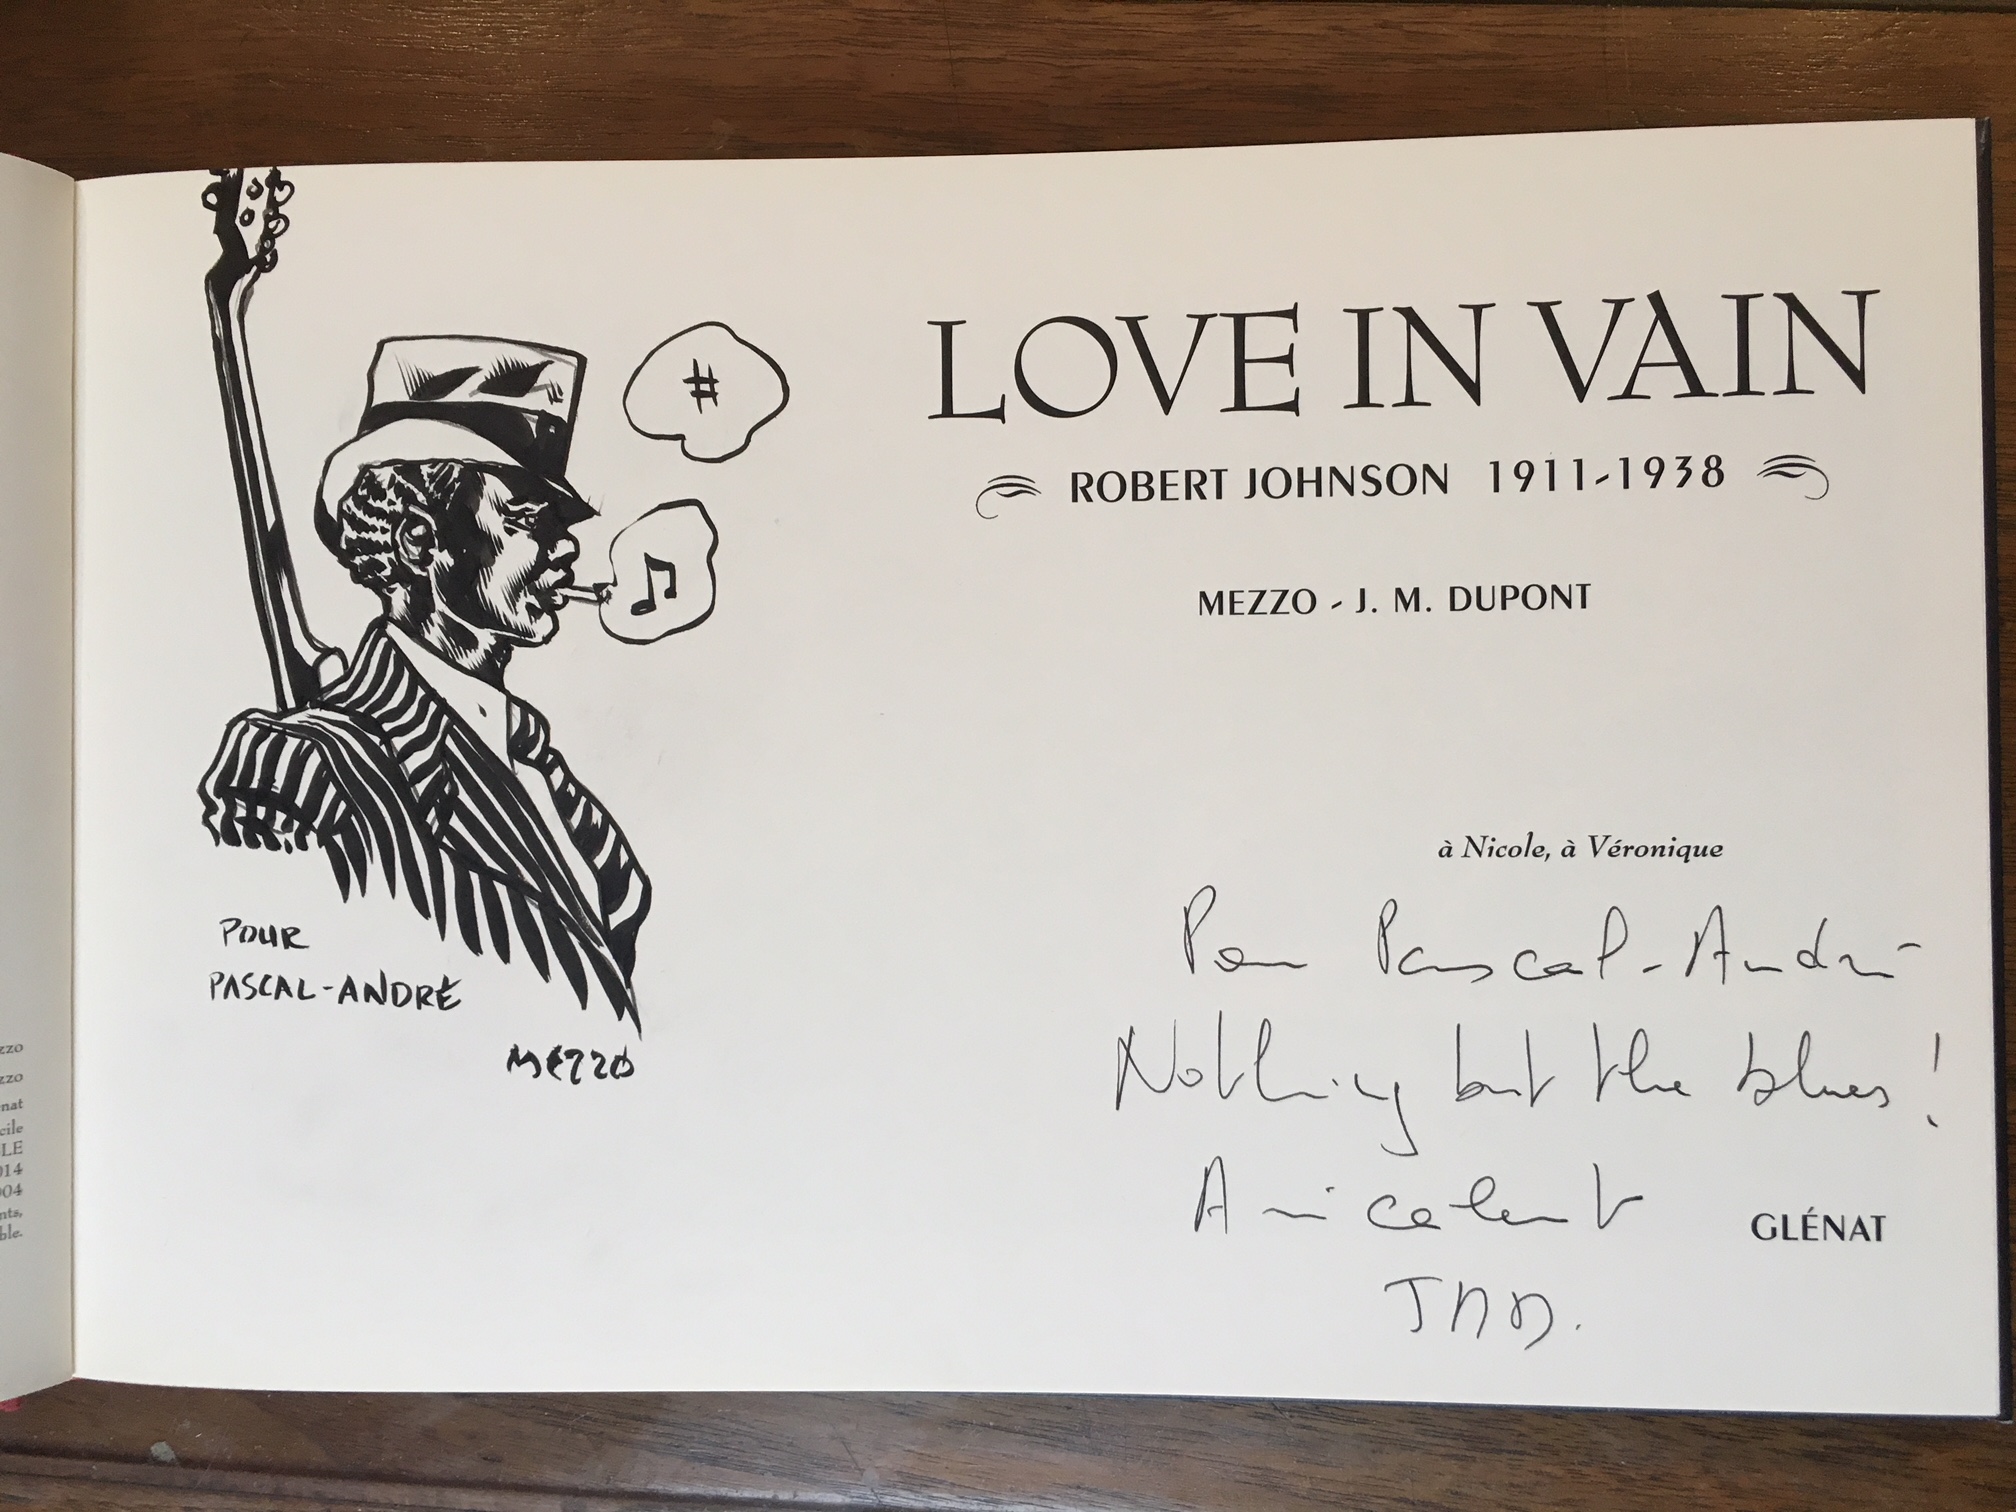 LOVE IN VAIN
ROBERT JOHNSON 1911-1938
MEZZO - J. M. DUPONT
à Nicole, à Véronique
#
♫
POUR
PASCAL-ANDRÉ
MEZZO
Pour Pascal-André
Nothing but the blues !
Amicalement
JMD.
GLÉNAT
zzo
zzo
nat
cile
LE
014
004
nts,
ble.